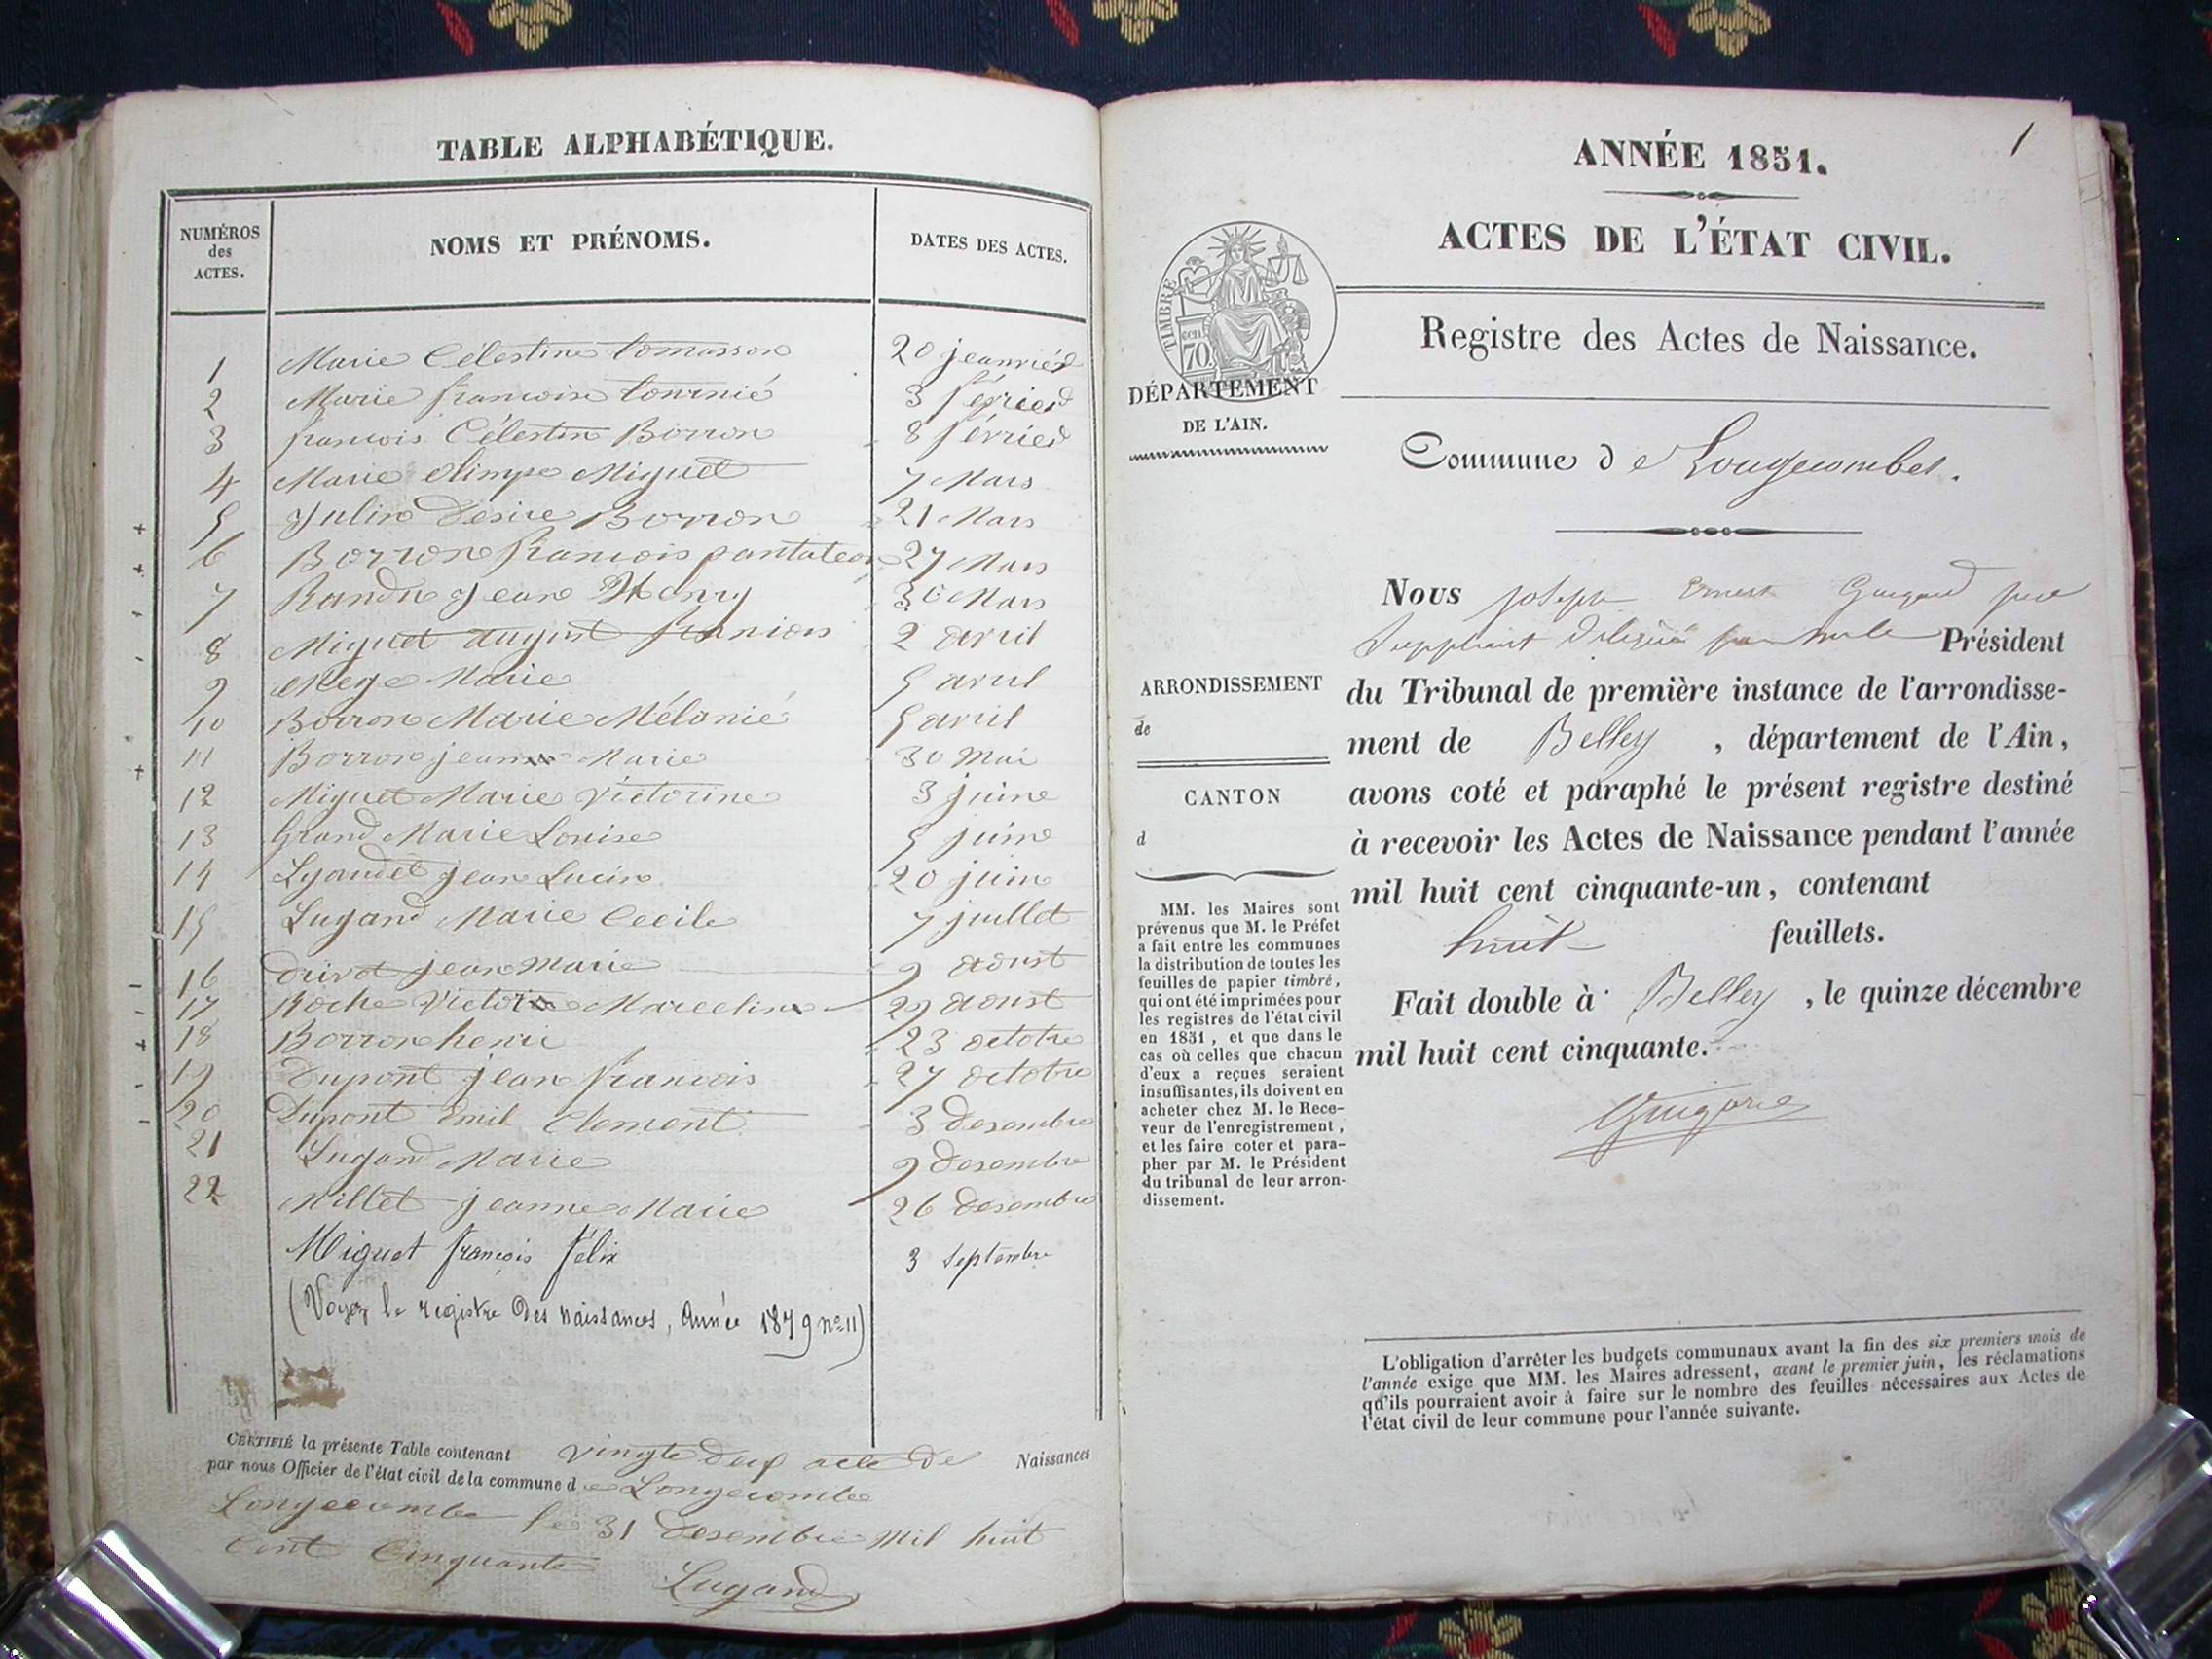 TABLE ALPHABÉTIQUE.
NUMÉROS
des
ACTES.
NOMS ET PRÉNOMS.
DATES DES ACTES.
1 Marie Célestine tomasson 20 jeanvier
2 Marie francoise tournié 3 février
3 francois Célestin Borron 8 février
4 Marie Olimpe Miguet 7 Mars
5 Julin desire Borron 21 Mars
6 Borron francois pantaleon 27 Mars
7 Randu Jean Henry 30 Mars
8 Miguet august 2 avril
9 Mege Marie 5 avril
10 Borron Marie Mélanié 5 avril
11 Borron jean Marie 30 Mai
12 Miguet Marie victorine 3 juine
13 Grand Marie Louise 5 juine
14 Lyaudet jean Lucin 20 juin
15 Lugand Marie Cecile 7 juillet
16 jean Marie 9 aoust
17 Roche Victor Marcelin 29 aoust
18 Borron henri 23 octobre
19 Dupont jean francois 27 octobre
20 Dupont Emil Clement 3 desembre
21 Lugand Marie 9 desembre
22 Millet jeanne Marie 26 desembre
Miguet françois félix 3 Septembre
(Voyez le registre des naissances, Année 1879 nº 11)
CERTIFIÉ la présente Table contenant vingte deux acte de Naissances
par nous Officier de l'état civil de la commune de Longecombe
Longecombe le 31 desembre mil huit
Cent Cinquante
Lugand
1
ANNÉE 1851.
ACTES DE L'ÉTAT CIVIL.
TIMBRE
70
Registre des Actes de Naissance.
DÉPARTEMENT
DE L'AIN.
Commune de Longecombe.
Nous joseph Ernest juge
Suppléant délégué Président
ARRONDISSEMENT
de
CANTON
d
du Tribunal de première instance de l'arrondisse-
ment de Belley, département de l'Ain,
avons coté et paraphé le présent registre destiné
à recevoir les Actes de Naissance pendant l'année
mil huit cent cinquante-un, contenant
huit feuillets.
Fait double à Belley, le quinze décembre
mil huit cent cinquante.
MM. les Maires sont
prévenus que M. le Préfet
a fait entre les communes
la distribution de toutes les
feuilles de papier timbré,
qui ont été imprimées pour
les registres de l'état civil
en 1851, et que dans le
cas où celles que chacun
d'eux a reçues seraient
insuffisantes, ils doivent en
acheter chez M. le Rece-
veur de l'enregistrement,
et les faire coter et para-
pher par M. le Président
du tribunal de leur arron-
dissement.
L'obligation d'arrêter les budgets communaux avant la fin des six premiers mois de
l'année exige que MM. les Maires adressent, avant le premier juin, les réclamations
qu'ils pourraient avoir à faire sur le nombre des feuilles nécessaires aux Actes de
l'état civil de leur commune pour l'année suivante.